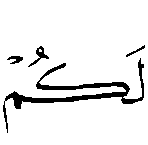 لَكُمْ